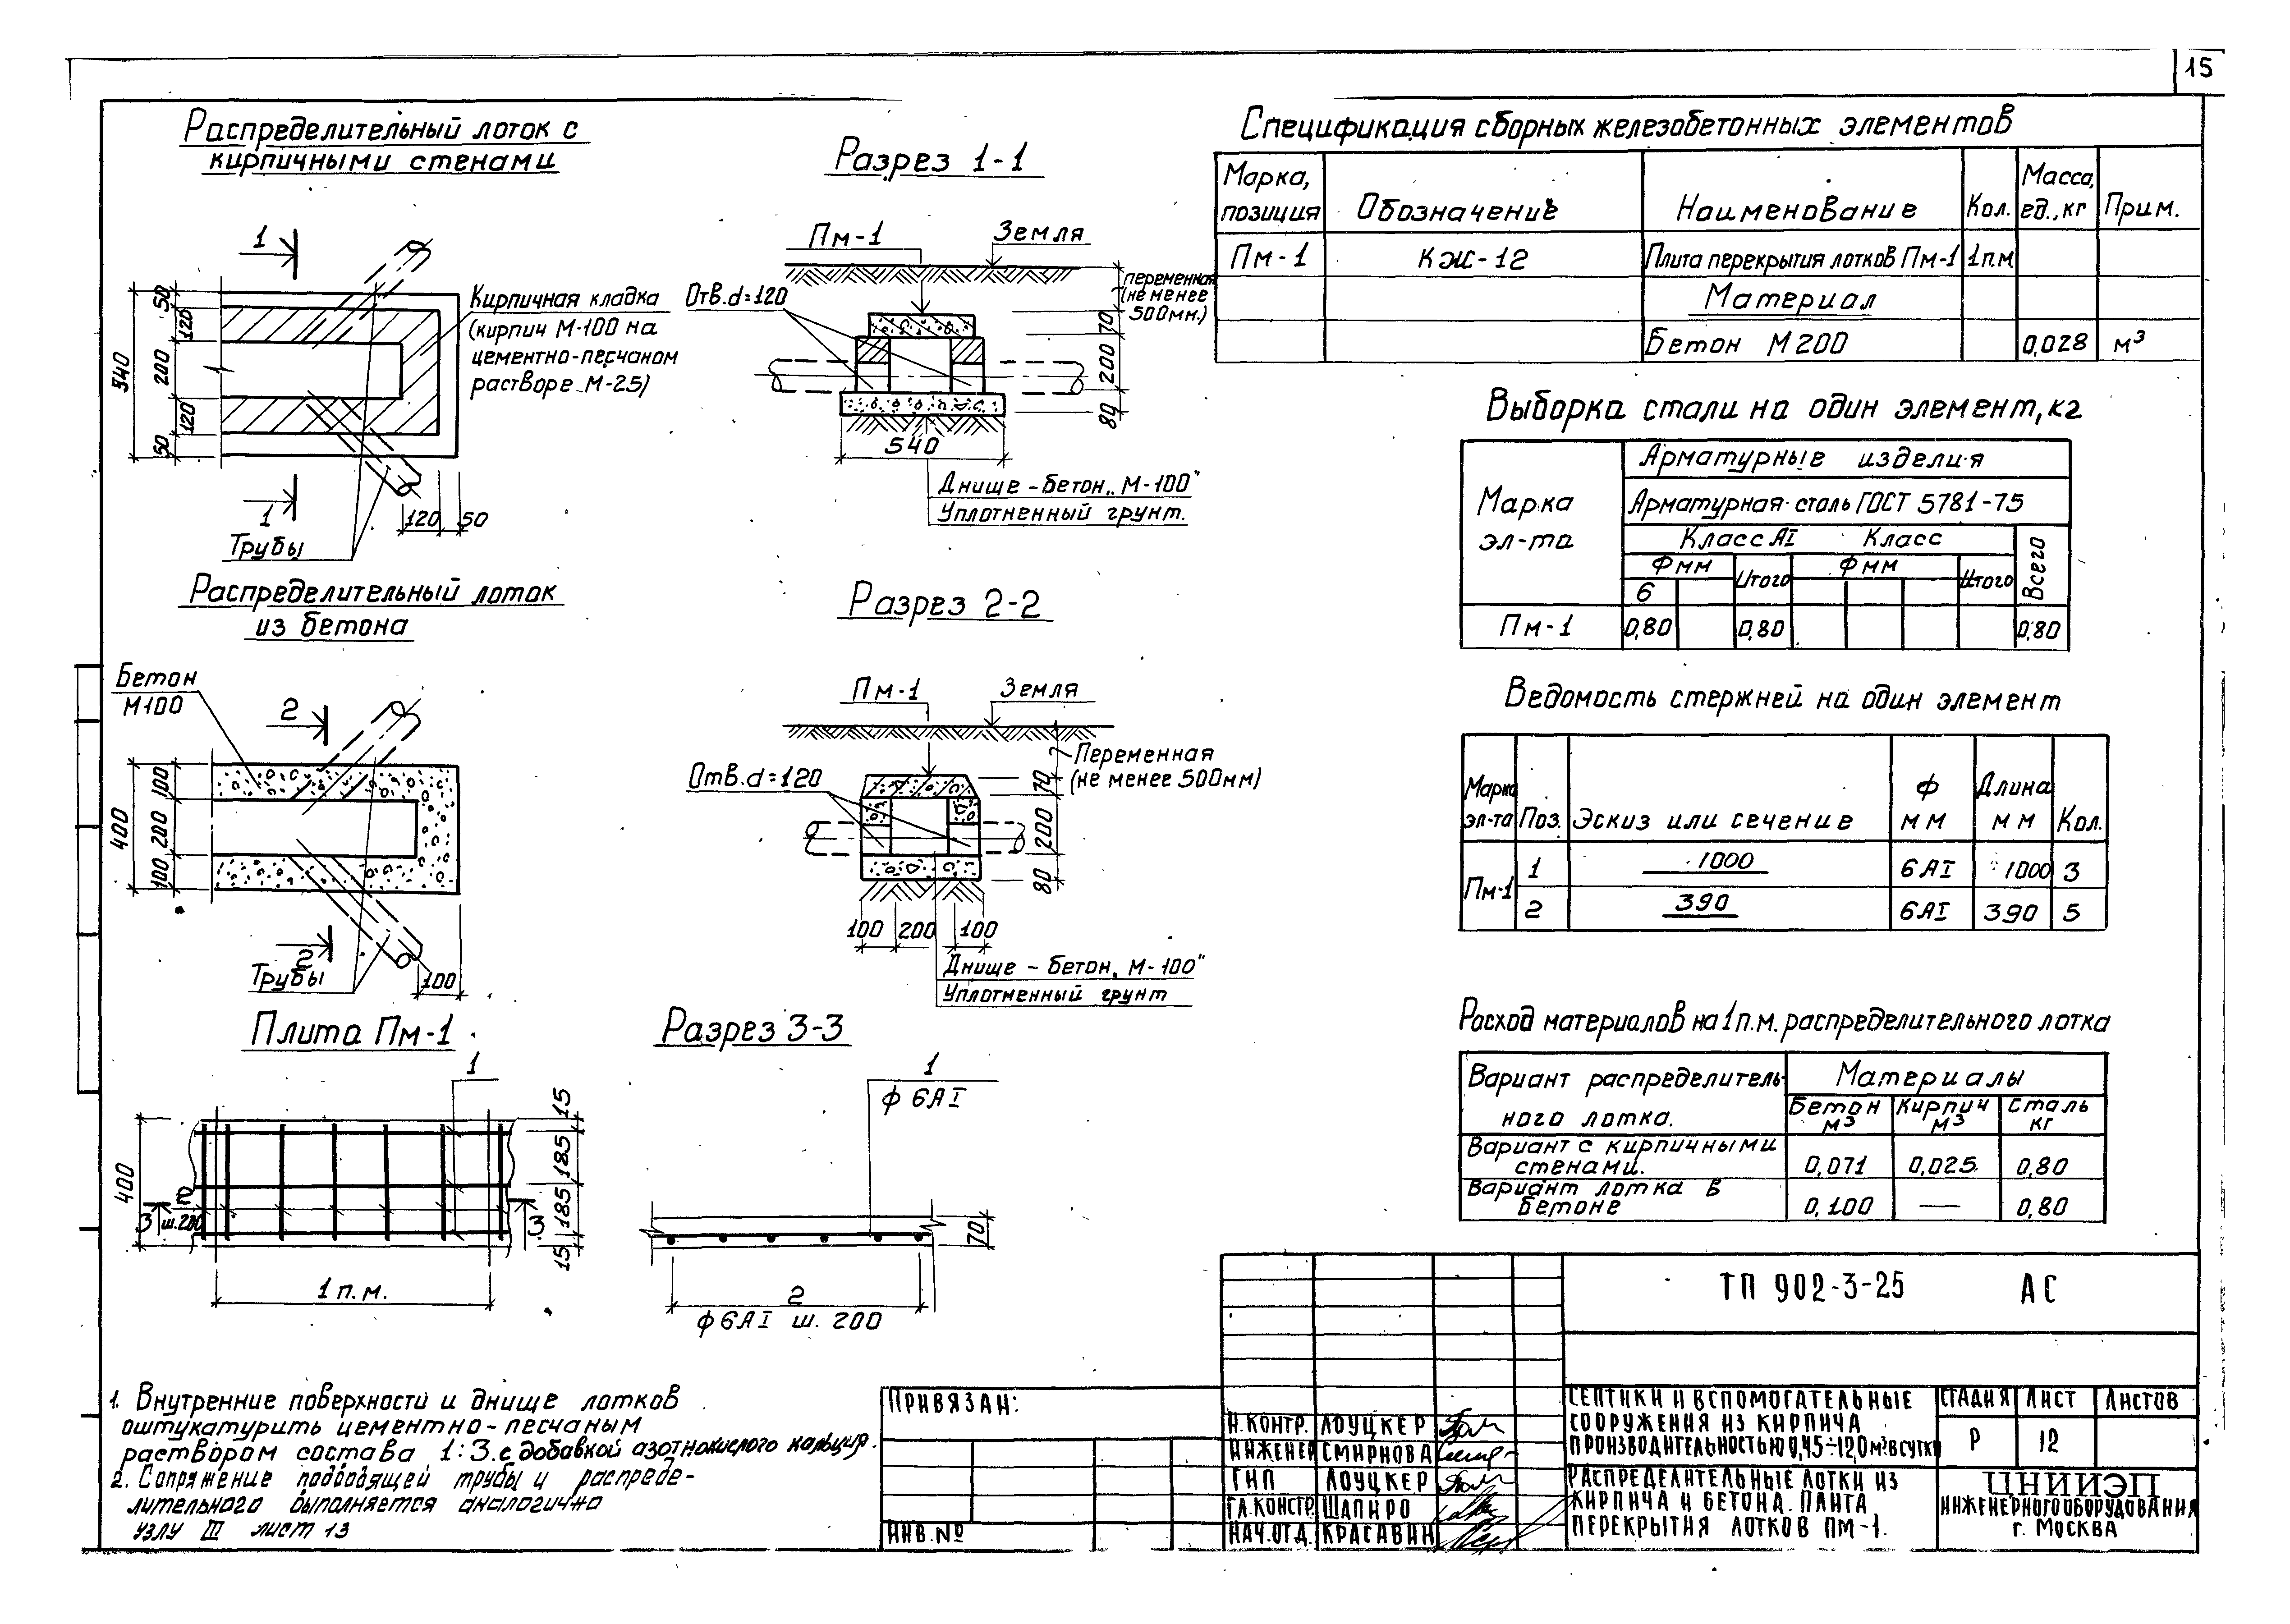 15
Распределительный лоток с
кирпичными стенами
1
1
540
50
120
200
120
50
120
50
Кирпичная кладка
(кирпич М-100 на
цементно-песчаном
растворе М-25)
Трубы
Разрез 1-1
Пм-1
Земля
Отв. d=120
переменная
(не менее
500мм.)
70
200
80
540
Днище - бетон „М-100"
Уплотненный грунт.
Распределительный лоток
из бетона
Бетон
М100
2
2
400
100
200
100
100
Трубы
Разрез 2-2
Пм-1
Земля
Отв. d=120
Переменная
(не менее 500мм)
70
200
80
100
200
100
Днище - бетон „М-100"
Уплотненный грунт
Плита Пм-1
1
400
2
3
ш.200
3
15
185
185
15
1 п.м.
Разрез 3-3
1
ф 6АI
70
2
ф6АI ш. 200
1. Внутренние поверхности и днище лотков
оштукатурить цементно-песчаным
раствором состава 1:3. с добавкой азотнокислого кальция.
2. Сопряжение подводящей трубы и распреде-
лительного выполняется аналогично
узлу III лист 13
Спецификация сборных железобетонных элементов
Марка, позиция Обозначение Наименование Кол. Масса, ед., кг Прим.
Пм-1 КЖ-12 Плита перекрытия лотков Пм-1 1п.м
Материал
Бетон М200 0,028 м³
Выборка стали на один элемент, кг
Марка эл-та
Арматурные изделия
Арматурная сталь ГОСТ 5781-75
Класс АI Класс Всего
Ф мм Итого Ф мм Итого
6
Пм-1 0,80 0,80 0,80
Ведомость стержней на один элемент
Марка эл-та Поз. Эскиз или сечение ф мм Длина мм Кол.
Пм-1 1 1000 6АI 1000 3
2 390 6АI 390 5
Расход материалов на 1 п.м. распределительного лотка
Вариант распределитель-
ного лотка.
Материалы
Бетон м³ Кирпич м³ Сталь кг
Вариант с кирпичными
стенами. 0,071 0,025 0,80
Вариант лотка в
бетоне 0,100 — 0,80
ТП 902-3-25 АС
ПРИВЯЗАН:
ИНВ.№
Н.КОНТР. ЛОУЦКЕР
ИНЖЕНЕР СМИРНОВА
ГИП ЛОУЦКЕР
ГЛ.КОНСТР. ШАПИРО
НАЧ.ОТД. КРАСАВИН
СЕПТИКИ И ВСПОМОГАТЕЛЬНЫЕ
СООРУЖЕНИЯ ИЗ КИРПИЧА
ПРОИЗВОДИТЕЛЬНОСТЬЮ 0,45÷12,0 м³ В СУТКИ
СТАДИЯ ЛИСТ ЛИСТОВ
Р 12
РАСПРЕДЕЛИТЕЛЬНЫЕ ЛОТКИ ИЗ
КИРПИЧА И БЕТОНА. ПЛИТА
ПЕРЕКРЫТИЯ ЛОТКОВ ПМ-1.
ЦНИИЭП
ИНЖЕНЕРНОГО ОБОРУДОВАНИЯ
г. МОСКВА